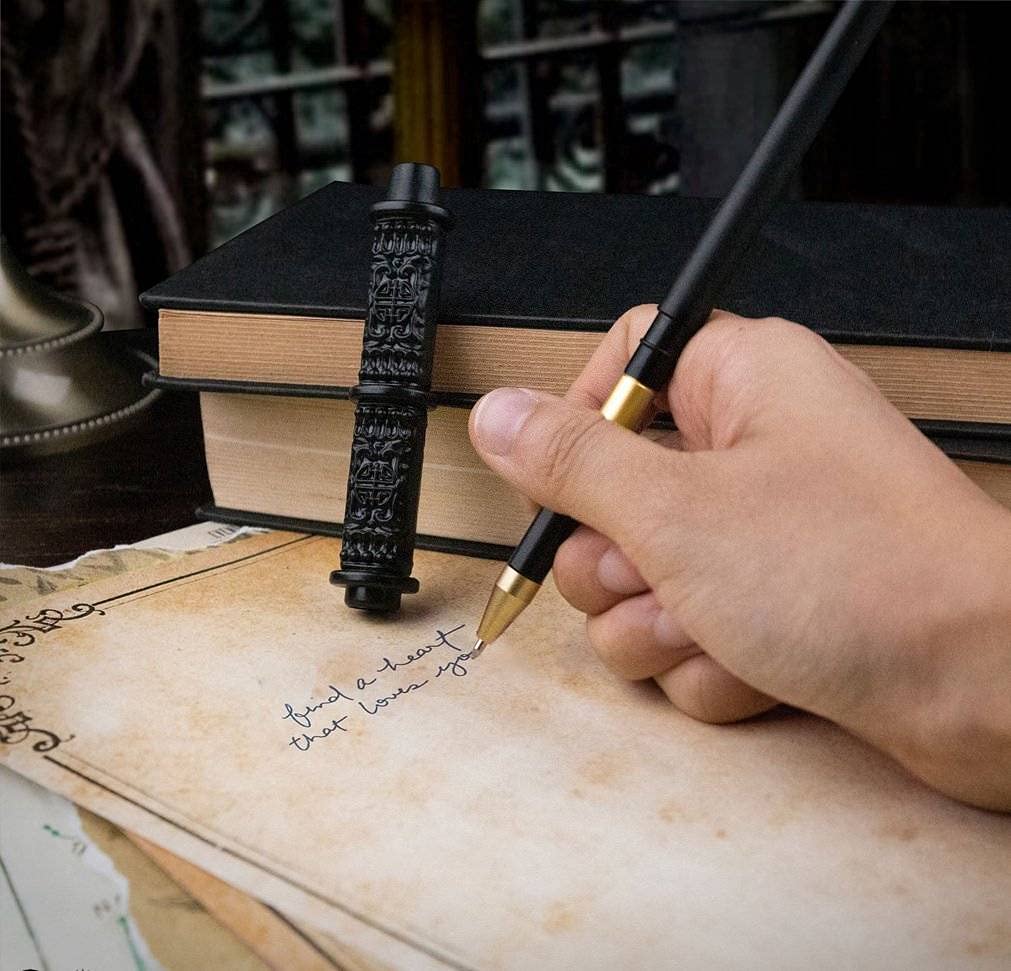 find a heart
that loves yo